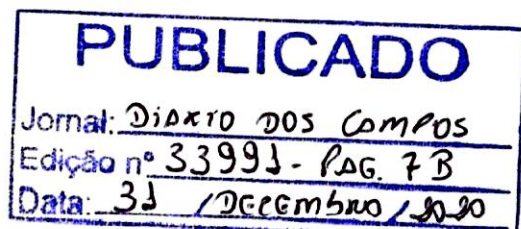 PUBLICADO
Jornal: DIARIO DOS CAMPOS
Edição nº 33991 - PAG. 7B
Data: 31 / DECEMBRO / 2020